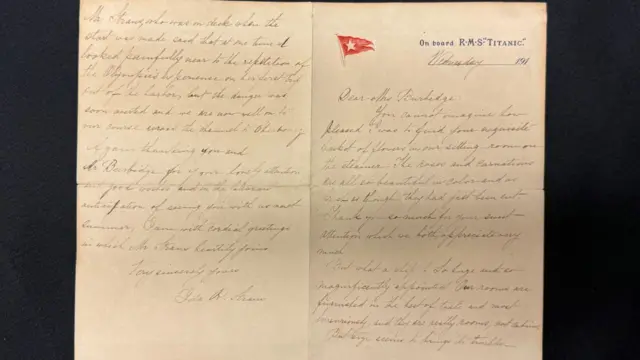 On board R·M·S "TITANIC."
Wednesday 191
Dear Mrs Burbidge:
You cannot imagine how
pleased I was to find your exquisite
basket of flowers in our sitting room on
the steamer. The roses and carnations
are all so beautiful in color and as
fresh as though they had just been cut.
Thank you so much for your sweet
attention which we both appreciate very
much.
But what a ship! So huge and so
magnificently appointed. Our rooms are
furnished in the best of taste and most
luxuriously, and they are really rooms, not cabins.
But size seems to bring its troubles.
Mr. Straus who was on deck when the
start was made said that at one time it
looked painfully near to the repetition of
the Olympic's experience on her first trip
out of the harbor, but the danger was
soon averted and we are now well on to
our course across the channel to Cherbourg
Again thanking you and
Mr Burbidge for your lovely attention
and good wishes and in the pleasant
anticipation of seeing you with us next
summer, I am with cordial greetings
in which Mr Straus heartily joins
Very sincerely yours
Ida R. Straus